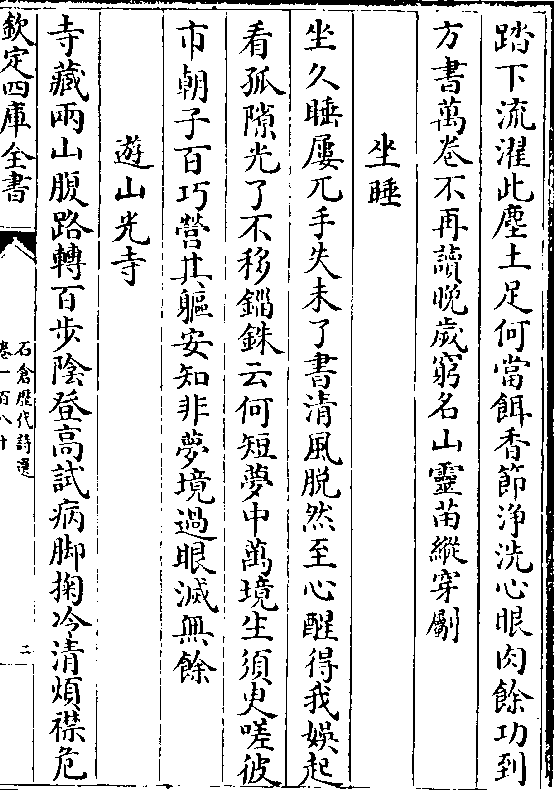 踏下流濯此塵土足何當餌香節浄洗心眼肉餘功到
方書萬卷不再讀晚歲窮名山靈苗縱穿劚
坐睡
坐久睡屢兀手失未了書清風脱然至心醒得我娛起
看孤隙光了不移錙銖云何短夢中萬境生須臾嗟彼
市朝子百巧營其軀安知非夢境過眼滅無餘
遊山光寺
寺藏兩山腹路轉百步陰登高試病脚掬冷清煩襟危
欽定四庫全書
石倉歷代詩選
卷一百八十
二